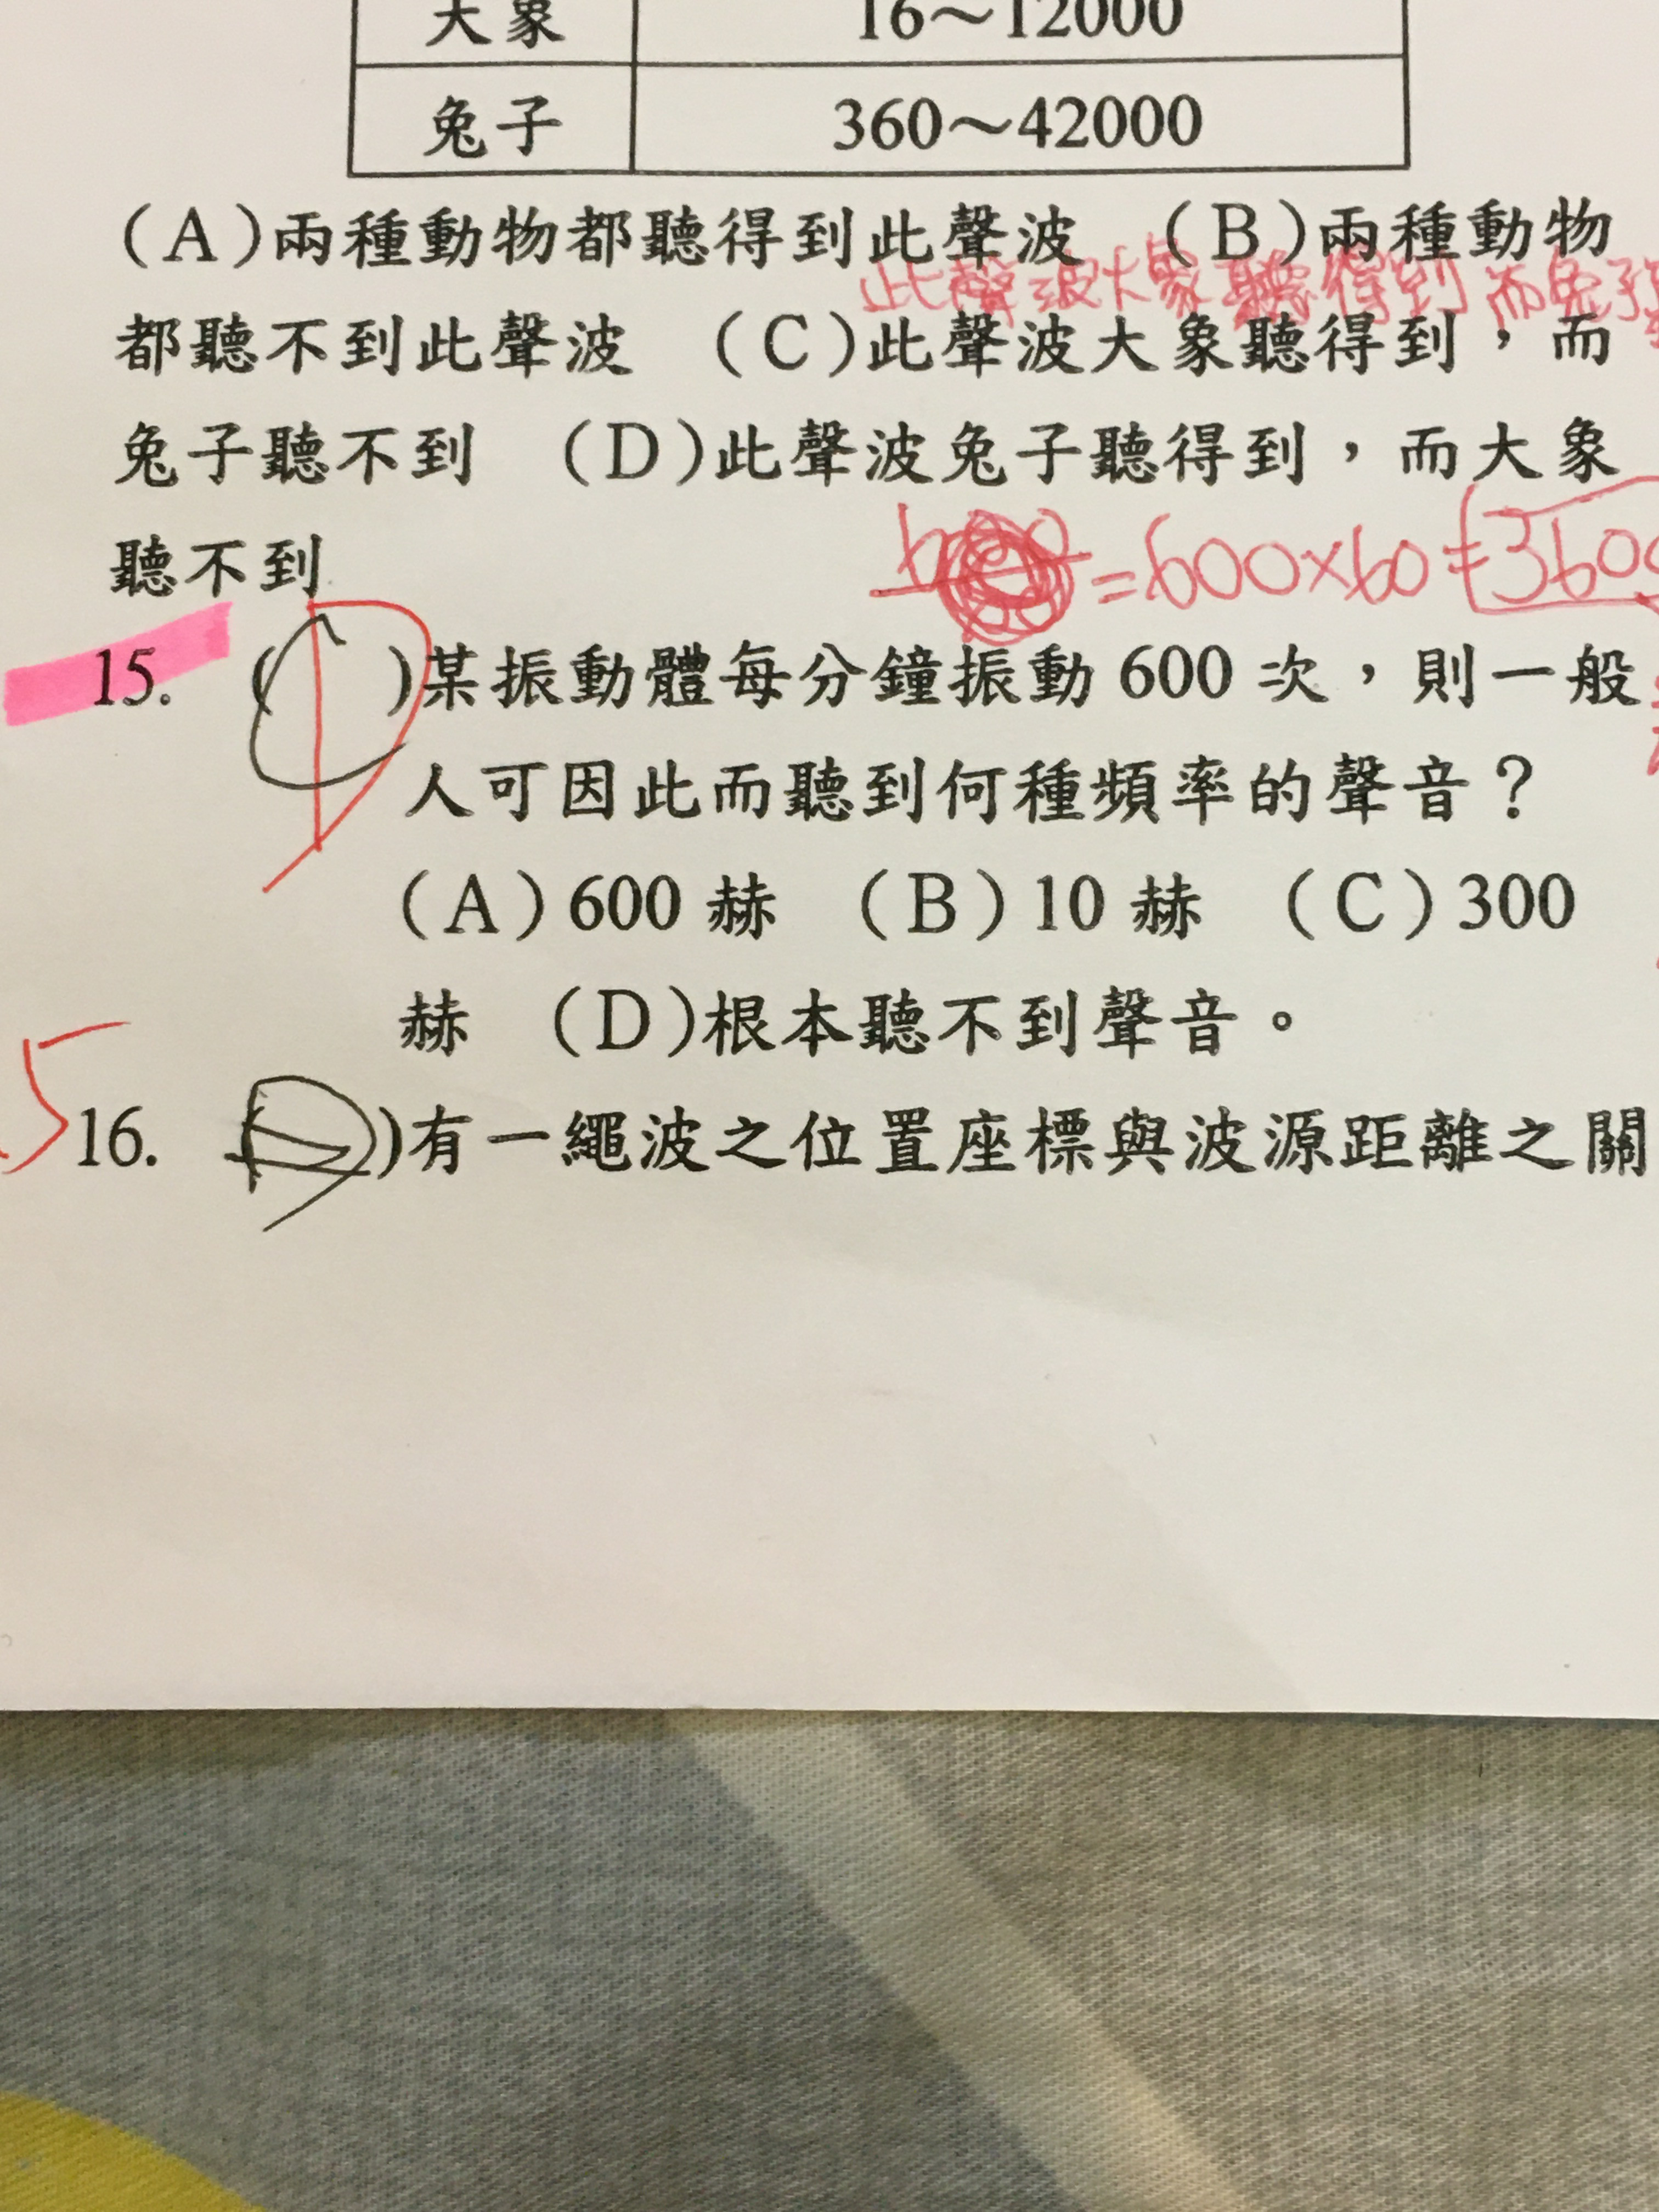 大象 16～12000
兔子 360～42000
(A)兩種動物都聽得到此聲波 (B)兩種動物
此聲波大象聽得到 而兔子
都聽不到此聲波 (C)此聲波大象聽得到，而
兔子聽不到 (D)此聲波兔子聽得到，而大象
聽不到
= 600×60 = 360
15. ( )某振動體每分鐘振動 600 次，則一般
人可因此而聽到何種頻率的聲音？
(A) 600 赫 (B) 10 赫 (C) 300
赫 (D)根本聽不到聲音。
16. ( )有一繩波之位置座標與波源距離之關